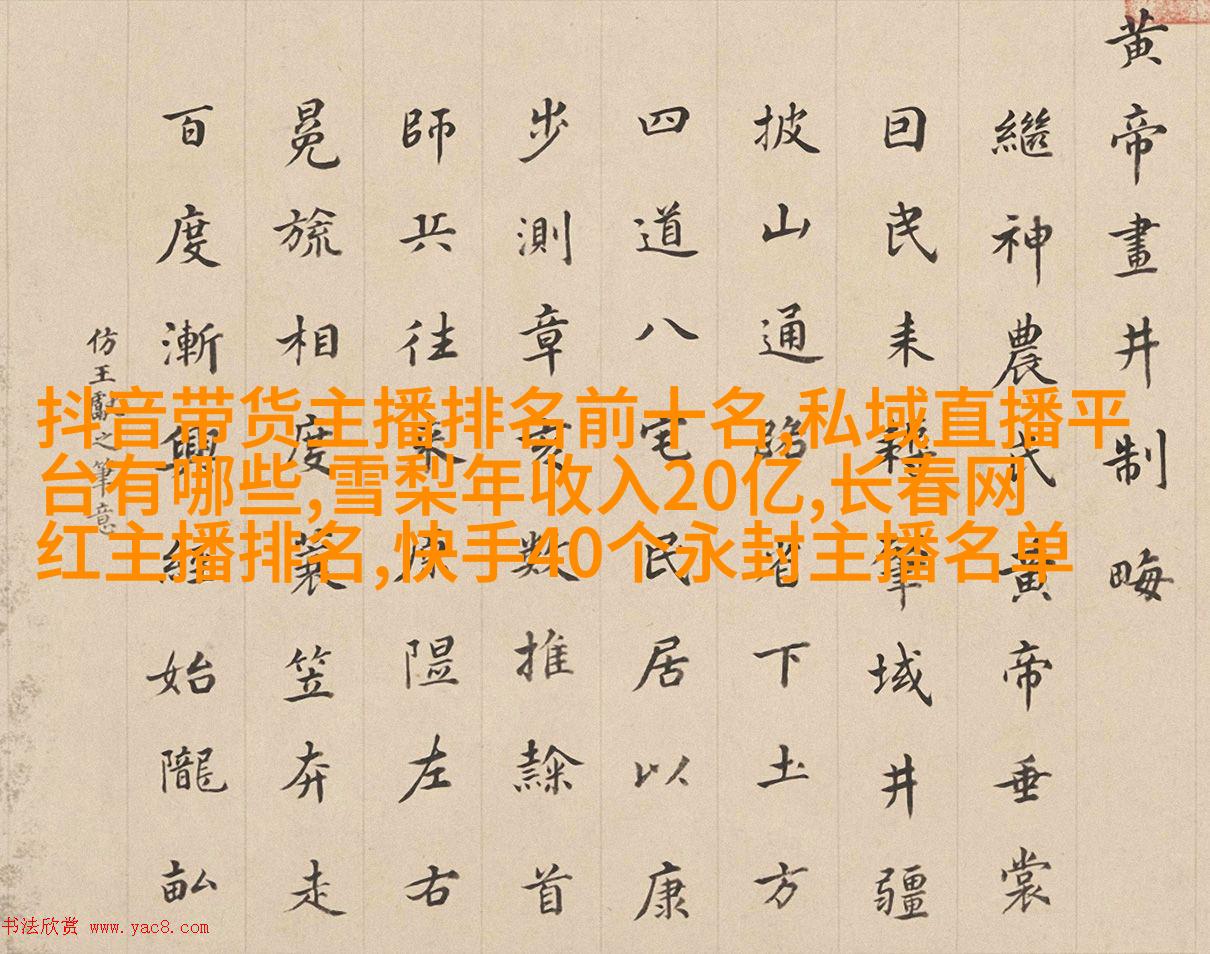 黄帝畫井制畮
繼神農氏黄帝垂裳
囙民耒耜肇域井疆
披山通路省下土方
四道八宅民居以康
步測章亥數推隸首
師兵往来原隰左右
冕旒相度蓑笠奔走
百度漸興經始隴畝
仿王獻之筆意
抖音带货主播排名前十名,私域直播平
台有哪些,雪梨年收入20亿,长春网
红主播排名,快手40个永封主播名单
书法欣赏 www.yac8.com